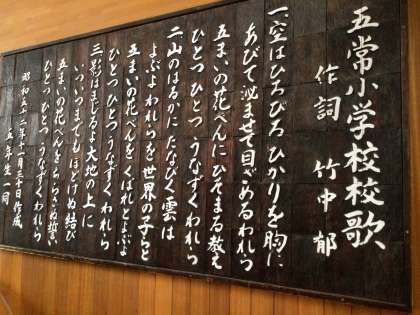 五常小学校校歌
作詞 竹中郁
一、空はひろびろ ひかりを胸に
あびて泌ませて目ざめるわれら
五まいの花べんに ひそまる教え
ひとつ ひとつ うなずくわれら
二 山のはるかに たなびく雲は
よぶよ われらを 世界の子らと
五まいの花べんを くばれとよぶよ
ひとつ ひとつ うなずくわれら
三 影はまじるよ 大地の上に
いついつまでも ほどけぬ結び
五まいの花べんを ちらさぬ誓い
ひとつ ひとつ うなずくわれら
昭和五十二年十一月三十日作成
五年生一同